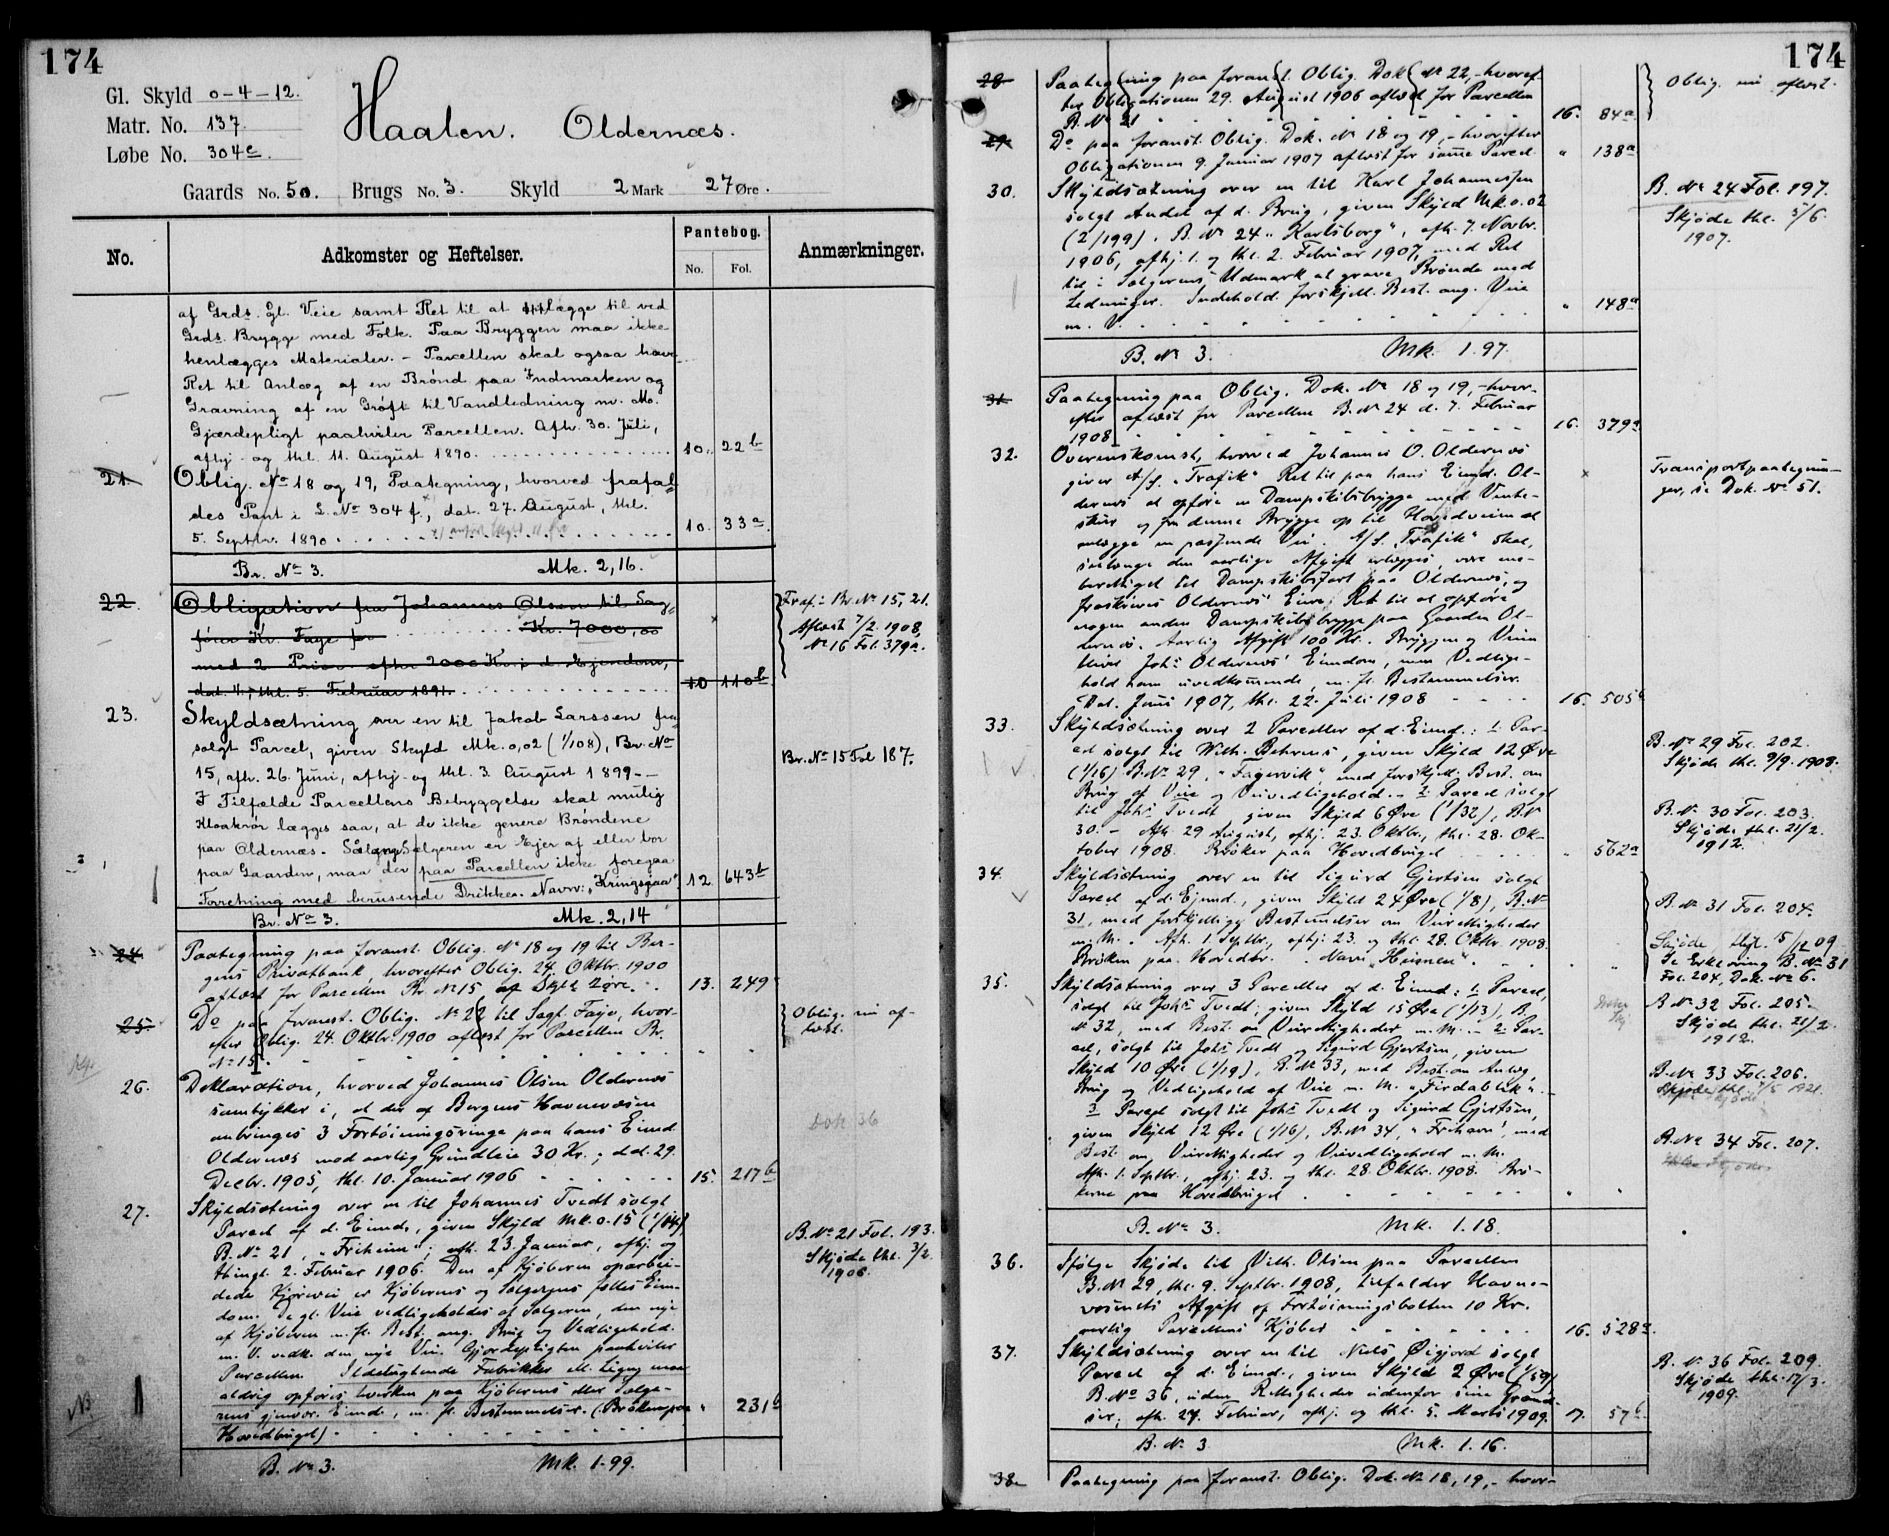 174
Gl. Skyld 0-4-12.
Matr. No. 137.
Løbe No. 304e.
Haalen. Oldernæs.
Gaards No. 50. Brugs No. 3. Skyld 2 Mark 27 Øre.
No. Adkomster og Heftelser. Pantebog. No. Fol. Anmærkninger.
af Grds. Gl. Veie samt Ret til at lægge til ved
Grds. Brygge med Folk. Paa Bryggen maa ikke
henlægges Materialer. - Parcellen skal ogsaa have
Ret til Anlæg af en Brønd paa Indmarken og
Gravning af en Grøft til Vandledning m. M.
Gjærdepligt paahviler Parcellen. Afh. 30. Juli,
afhj. og thl. 11. August 1890. 10. 22b
21. Oblig. No 18 og 19, Paategning, hvorved frafal-
des Pant i L. No 304 f, dat. 27. August, thl.
5. Septbr. 1890 10. 33a
Br. No 3. Mk. 2,16.
22. Obligation fra Johannes Olsen til Sag-
fører Kr. Faye for Kr. 7000,00
med 2. Prior. efter 2000 Kr. i d. Ejendom,
dat. 4., thl. 5. Februar 1891. 10 110b
Fraf. i Br. No 15, 21.
Aflæst 7/2. 1908,
No 16 Fol. 379a.
23. Skyldsætning over en til Jakob Larssen fra-
solgt Parcel, given Skyld Mk. 0,02 (1/108), Br. No
15, afh. 26. Juni, afhj. og thl. 3. August 1899. -
I Tilfælde Parcellens Bebyggelse skal mulig
Kloakrør lægges saa, at de ikke genere Brøndene
paa Oldernæs. Sålænge Sælgeren er Ejer af eller bor
paa Gaarden, maa der paa Parcellen ikke foregaa
Forretning med berusende Drikke. Navn: "Kringsjaa". 12 643b
Br. No 15 Fol 187.
Br. No 3. Mk. 2,14
24. Paategning paa foranst. Oblig. No 18 og 19 til Ber-
gens Privatbank, hvorefter Oblig. 24. Oktbr. 1900
aflæst for Parcellen Br. No 15 af Skyld 2 øre. 13. 249
25. Do paa foranst. Oblig. No 22 til Sagf. Faye, hvor-
efter Oblig. 24. Oktbr. 1900 aflæst for Parcellen Br.
No 15. " "
Oblig. nu af-
læst.
26. Deklaration, hvorved Johannes Olsen Oldernæs
samtykker i, at der af Bergens Havnevæsen
anbringes 3 Fortøiningsringe paa hans Eiend.
Oldernæs mod aarlig Grundleie 30 Kr.; dat. 29.
Decbr. 1905, thl. 10. Januar 1906 15. 217b
Dok 36
27. Skyldsætning over en til Johannes Tvedt solgt
Parcel af d. Eiend., given Skyld Mk. 0.15 (1/14),
B. No 21, "Friheim"; afh. 23. Januar, afhj. og
thingl. 2. Februar 1906. Den af Kjøberen oparbei-
dede Kjørevei er Kjøberens og Sælgerens fælles Eien-
dom. De gl. Veie vedligeholdes af Sælgeren, den nye
af Kjøberen m. fl. Best. ang. Brug og Vedligehold.
m. V. vedk. den nye Vei. Gjerdepligten paahviler
Parcellen. Ildelugtende Fabrikker el. Lign. maa
aldrig opføres hverken paa Kjøberens eller Sælge-
rens gjenvær. Eiend., m. fl. Bestemmelser. (Brøken paa
Hovedbruget) " 231b
B. No 21 Fol. 193.
Skjøde thl. 3/2.
1906.
B. No 3. Mk. 1.99.
174
28. Paategning paa foranst. Oblig. Dok. No 22, - hvoref-
ter Obligationen 29. August 1906 aflæst for Parcellen
B. No 21 16. 84a
Oblig. nu aflæst.
29. Do paa foranst. Oblig. Dok. No 18 og 19, - hvorefter
Obligationen 9. Januar 1907 aflæst for samme Parcel " 138a
30. Skyldsætning over en til Karl Johannessen
solgt Andel af d. Brug, given Skyld Mk. 0.02
(2/199). B. No 24 "Karlsborg", afh. 7. Novbr.
1906, afhj. 1. og thl. 2. Februar 1907, med Ret
til i Sælgerens Udmark at grave Brønde med
Ledninger. Indehold. forskjell. Best. ang. Veie
m. V. " 148a
B. No 24 Fol. 197.
Skjøde thl. 5/6.
1907.
B. No 3. Mk. 1.97.
31. Paategning paa Oblig. Dok. No 18 og 19, - hvor-
efter aflæst for Parcellen B. No 24 d. 7. Februar
1908 16. 379a
32. Overenskomst, hvorved Johannes O. Oldernæs
giver A/S. "Trafik" Ret til paa hans Eiend. Ol-
dernæs at opføre en Dampskibsbrygge med Vente-
skur og fra denne Brygge op til Hovedveien at
anlægge en passende Vei. A/S. "Trafik" skal,
saalænge den aarlige Afgift erlægges, være ene-
berettiget til Dampskibsfart paa Oldernæs, og
fraskrives Oldernæs' Eiere Ret til at opføre
nogen anden Dampskibsbrygge paa Gaarden Ol-
dernæs. Aarlig Afgift 100 Kr. Bryggen og Veien
bliver Johs Oldernæs' Eiendom, men Vedlige-
hold ham uvedkommende, m. fl. Bestemmelser.
Dat. Juni 1907, thl. 22. Juli 1908 16. 505
Transportpaategnin-
ger, se Dok. No 51.
33. Skyldsætning over 2 Parceller af d. Eiend.: 1. Par-
cel solgt til Wilh. Behrens, given Skyld 12 Øre
(1/16) B. No 29, "Fagervik" med forskjell. Best. om
Brug af Veie og Veivedligehold. - 2. Parcel solgt
til Johs Tvedt given Skyld 6 Øre (1/32), B. No
30. - Afh. 29 August, afhj. 23. Oktbr., thl. 28. Ok-
tober 1908. Brøker paa Hovedbruget " 562a
B. No 29 Fol. 202.
Skjøde thl. 9/9. 1908.
B. No 30 Fol. 203.
Skjøde thl. 21/2.
1912.
34. Skyldsætning over en til Sigurd Gjertsen solgt
Parcel af d. Eiend., given Skyld 24 Øre (1/8), B. No
31, med forskjellige Bestemmelser om Veirettigheder
m. M. Afh. 1. Septbr., afhj. 23. og thl. 28. Oktbr. 1908.
Brøken paa Hovedbr. Navn "Heimen". " "
B. No 31 Fol. 204.
Skjøde thgl. 15/12 09
Se Erklæring B. No 31
Fol. 204, Dok. No 6.
35. Skyldsætning over 3 Parceller af d. Eiend.: 1. Parcel,
solgt til Johs Tvedt; given Skyld 15 Øre (1/13), B.
No 32, med Best. om Veirettigheder m. M. - 2. Par-
cel, solgt til Johs Tvedt og Sigurd Gjertsen, given
Skyld 10 Øre (1/19), B. No 33, med Best. om Anlæg,
Brug og Vedligehold af Veie m. M. "Firdablik". -
3. Parcel solgt til Johs Tvedt og Sigurd Gjertsen,
given Skyld 12 Øre (1/16), B. No 34, "Frihavn", med
Best. om Veirettigheder og Veivedligehold m. M.
Afh. 1. Septbr., afhj. 23. og thl. 28. Oktbr. 1908. Brø-
kerne paa Hovedbruget " "
B. No 32 Fol. 205.
Skjøde thl. 21/2.
1912.
B. No 33 Fol. 206.
B. No 34 Fol. 207.
B. No 3. Mk. 1.18.
36. Ifølge Skjøde til Vilh. Olsen paa Parcellen
B. No 29, thl. 9. Septbr. 1908, tilfalder Havne-
væsenets Afgift af Fortøiningsbolten 10 Kr.
aarlig Parcellens Kjøber 16. 528a.
37. Skyldsætning over en til Niels Øigjord solgt
Parcel af d. Eiend., given Skyld 2 Øre (1/59)
B. No 36, uden Rettigheder udenfor sine Grænd-
ser; afh. 27. Februar, afhj. og thl. 5. Marts 1909. 17. 57b.
B. No 36 Fol. 209.
Skjøde thl. 17/3.
1909.
B. No 3 Mk. 1.16.
38. Paategning paa foranst. Oblig. Dok. No 18, 19, - hvor-